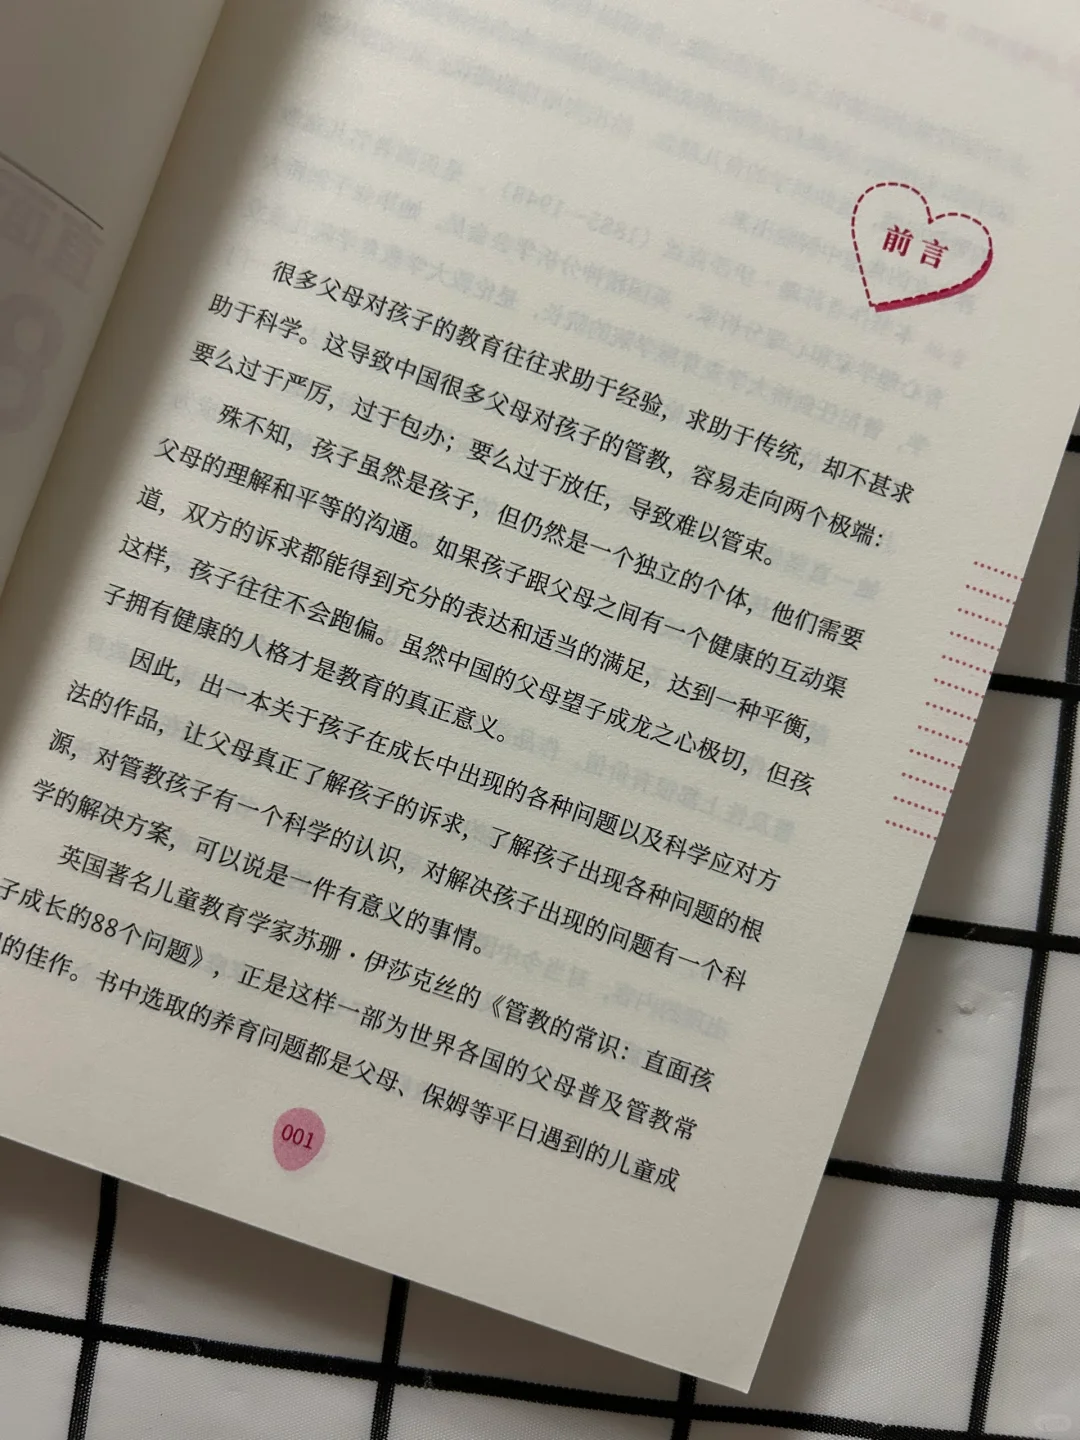 前言
很多父母对孩子的教育往往求助于经验，求助于传统，却不甚求
助于科学。这导致中国很多父母对孩子的管教，容易走向两个极端：
要么过于严厉，过于包办；要么过于放任，导致难以管束。
殊不知，孩子虽然是孩子，但仍然是一个独立的个体，他们需要
父母的理解和平等的沟通。如果孩子跟父母之间有一个健康的互动渠
道，双方的诉求都能得到充分的表达和适当的满足，达到一种平衡，
这样，孩子往往不会跑偏。虽然中国的父母望子成龙之心极切，但孩
子拥有健康的人格才是教育的真正意义。
因此，出一本关于孩子在成长中出现的各种问题以及科学应对方
法的作品，让父母真正了解孩子的诉求，了解孩子出现各种问题的根
源，对管教孩子有一个科学的认识，对解决孩子出现的问题有一个科
学的解决方案，可以说是一件有意义的事情。
英国著名儿童教育学家苏珊·伊莎克丝的《管教的常识：直面孩
子成长的88个问题》，正是这样一部为世界各国的父母普及管教常
的佳作。书中选取的养育问题都是父母、保姆等平日遇到的儿童成
001